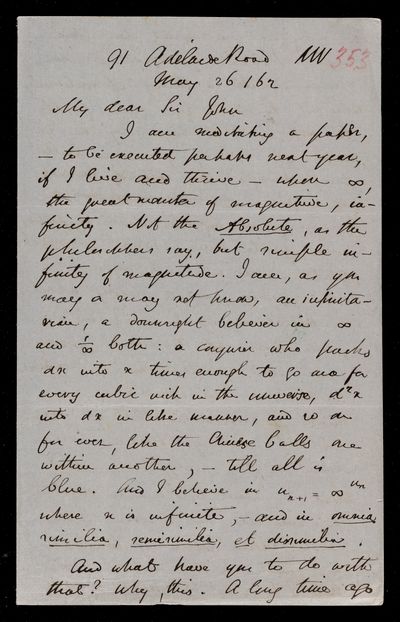 91 Adelaide Road NW 353
May 26/62
My dear Sir John
I am meditating a paper,
— to be executed perhaps next year,
if I live and thrive — upon ∞,
the great monster of magnitude, in-
finity. Not the Absolute, as the
philosophers say, but simple in-
finity of magnitude. I am, as you
may or may not know, an infinita-
rian, a downright believer in ∞
and 1/∞ both: a who packs
dx into x times enough to go one for
every cubic inch in the universe, d²x
into dx in like manner, and so on
for ever, like the Chinese balls one
within another, — till all is
blue. And I believe in u_{n+1} = ∞^{u_n}
where n is infinite, — and in omnia
similia, semisimilia, et dissimilia.
And what have you to do with
that? Why, this. A long time ago